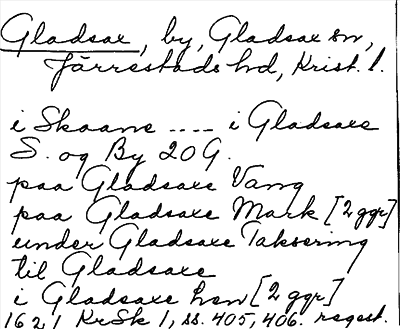 Gladsax, by, Gladsax sn,
Järrestads hd, Krist. l.
i Skaane .... i Gladsaxe
S. og By 20 G.
paa Gladsaxe Vang
paa Gladsaxe Mark [2 ggr]
under Gladsaxe Taksering
til Gladsaxe
i Gladsaxe hsn [2 ggr]
1621 KrSk 1, ss. 405, 406. regest.